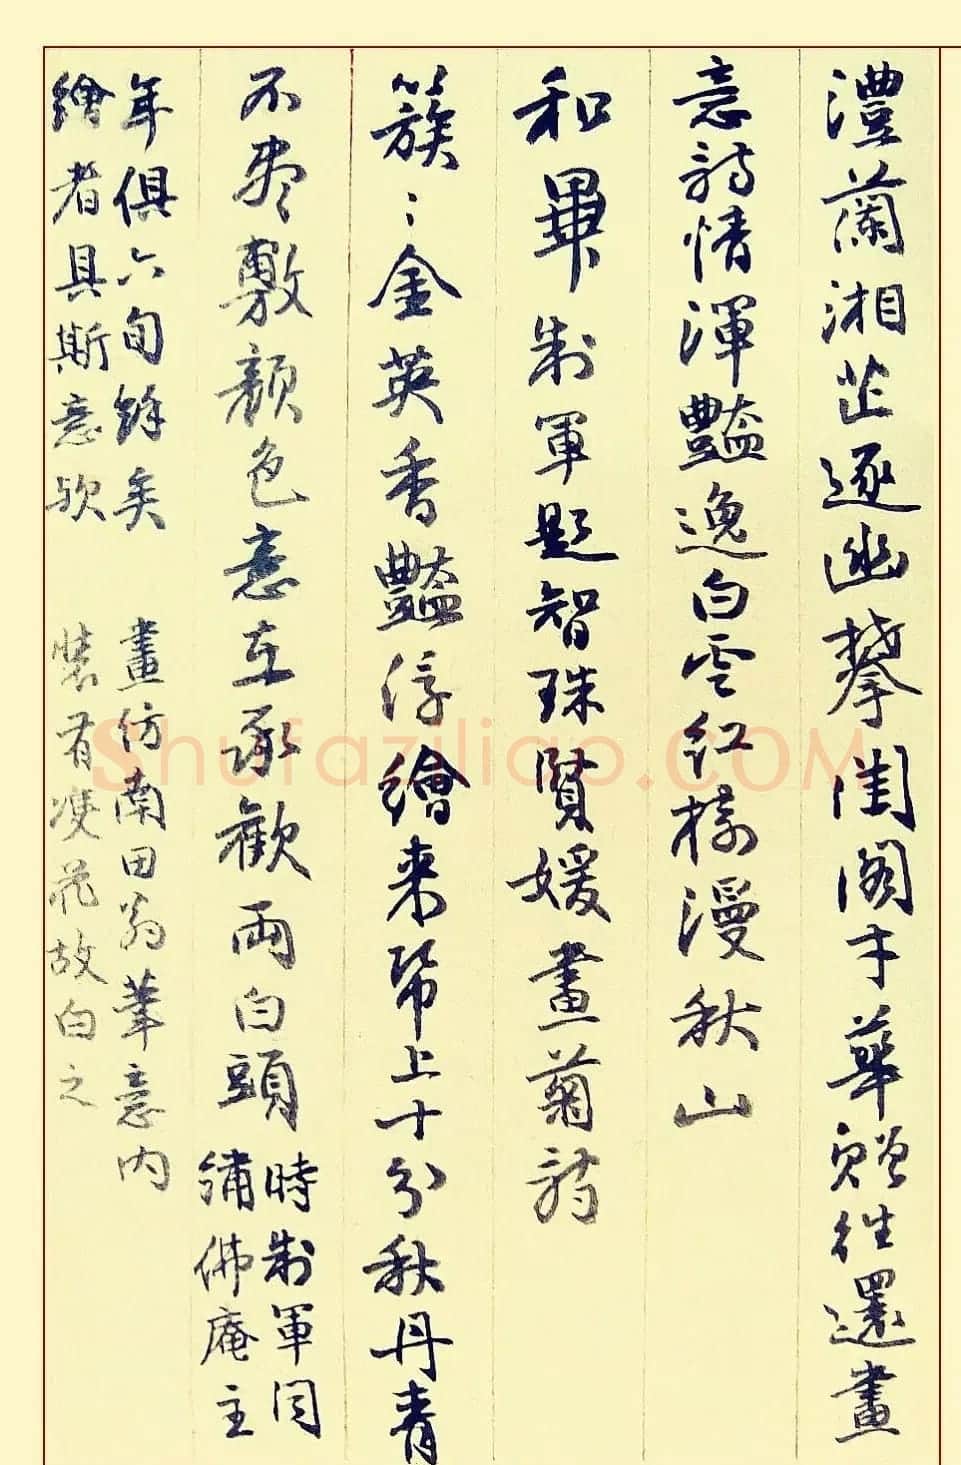 澧蘭湘芷逐幽攀閨閣才華贈往還畫
意詩情渾豔逸白雲紅樹漫秋山
和畢制軍題智珠賢媛畫菊詩
簇〻金英香豔浮繪來帋上十分秋丹青
不盡敷顏色意在承歡兩白頭
時制軍同
繡佛庵主
年俱六旬餘矣 畫仿南田翁筆意內
繪者具斯意歟 裝有瘦花故白之
Shufaziliao.COM